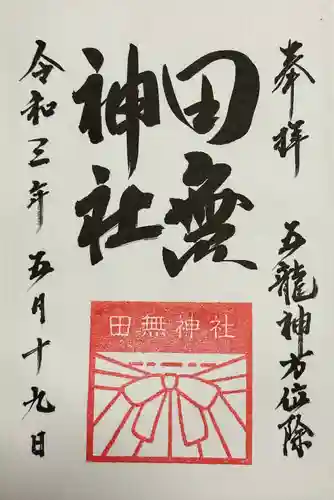 奉拝
五龍神方位除
田無
神社
令和三年
五月十九日
田無神社